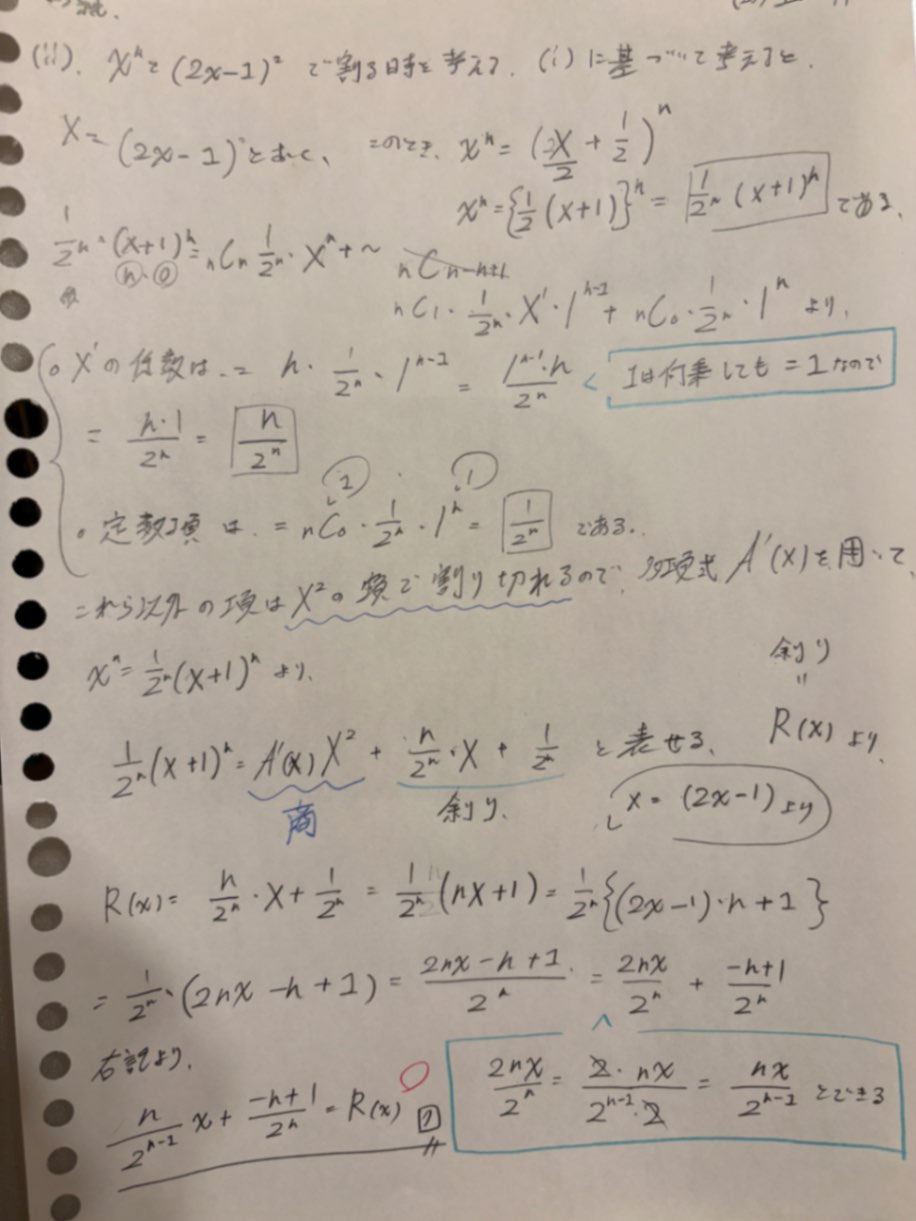 (ii). xⁿを(2x-1)²で割る時を考える. (i)に基づいて考えると.
X = (2x-1)とおく、このとき、xⁿ = (X/2 + 1/2)ⁿ
xⁿ = {1/2 (X+1)}ⁿ = 1/2ⁿ (X+1)ⁿ である。
1/2ⁿ・(X+1)ⁿ = nCn 1/2ⁿ・Xⁿ + ～
n・0
nC1・1/2ⁿ・X¹・1ⁿ⁻¹ + nC0・1/2ⁿ・1ⁿ より,
。X¹の係数は. = n・1/2ⁿ・1ⁿ⁻¹ = 1ⁿ⁻¹・n/2ⁿ < 1は何乗しても = 1なので
= n・1/2ⁿ = n/2ⁿ
1 1
。定数項は. = nC0・1/2ⁿ・1ⁿ = 1/2ⁿ である..
これら以外の項はX²の項で割り切れるので, 多項式 A'(X)を用いて,
xⁿ = 1/2ⁿ(X+1)ⁿ より,
余り
〃
R(x) より,
1/2ⁿ(X+1)ⁿ = A'(X)X² + n/2ⁿ・X + 1/2ⁿ と表せる、
商
余り、
X = (2x-1) より
R(x) = n/2ⁿ・X + 1/2ⁿ = 1/2ⁿ(nX+1) = 1/2ⁿ{(2x-1)・n+1}
= 1/2ⁿ・(2nx-n+1) = 2nx-n+1/2ⁿ = 2nx/2ⁿ + -n+1/2ⁿ
右記より,
2nx/2ⁿ = 2・nx/2ⁿ⁻¹・2 = nx/2ⁿ⁻¹ とできる
n/2ⁿ⁻¹ x + -n+1/2ⁿ = R(x)